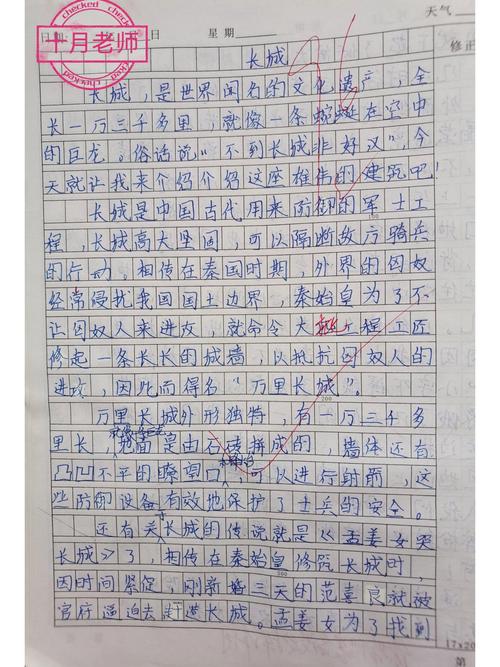 天气
日期
日
星期
修正
十月老师
checked checked checked
长城
长城，是世界闻名的文化遗产，全
长一万三千多里，就像一条蜿蜒在空中
的巨龙。俗话说"不到长城非好汉"，今
天就让我来介绍介绍这座雄伟的建筑吧！
长城是中国古代用来防御的军士工
程，长城高大坚固，可以隔断敌方骑兵
的行动，相传在秦国时期，外界的匈奴
经常侵扰我国国土边界，秦始皇为了不
让匈奴人来进攻，就命令大批工程工匠
修起一条长长的城墙，以抵抗匈奴人的
进攻，因此而得名"万里长城"。
200
万里长城外形独特，有一万三千多
里长，地面是由石砖拼成的，墙体还有
凸凹不平的瞭望口，可以进行射箭，这
些防御设备有效地保护了士兵的安全。
还有关长城的传说就是《孟姜女哭
长城》了，相传在秦始皇修筑长城时，
因时间紧促，刚新婚三天的范喜良就被
官府逼迫去赶造长城。孟姜女为了找到
17x20
第